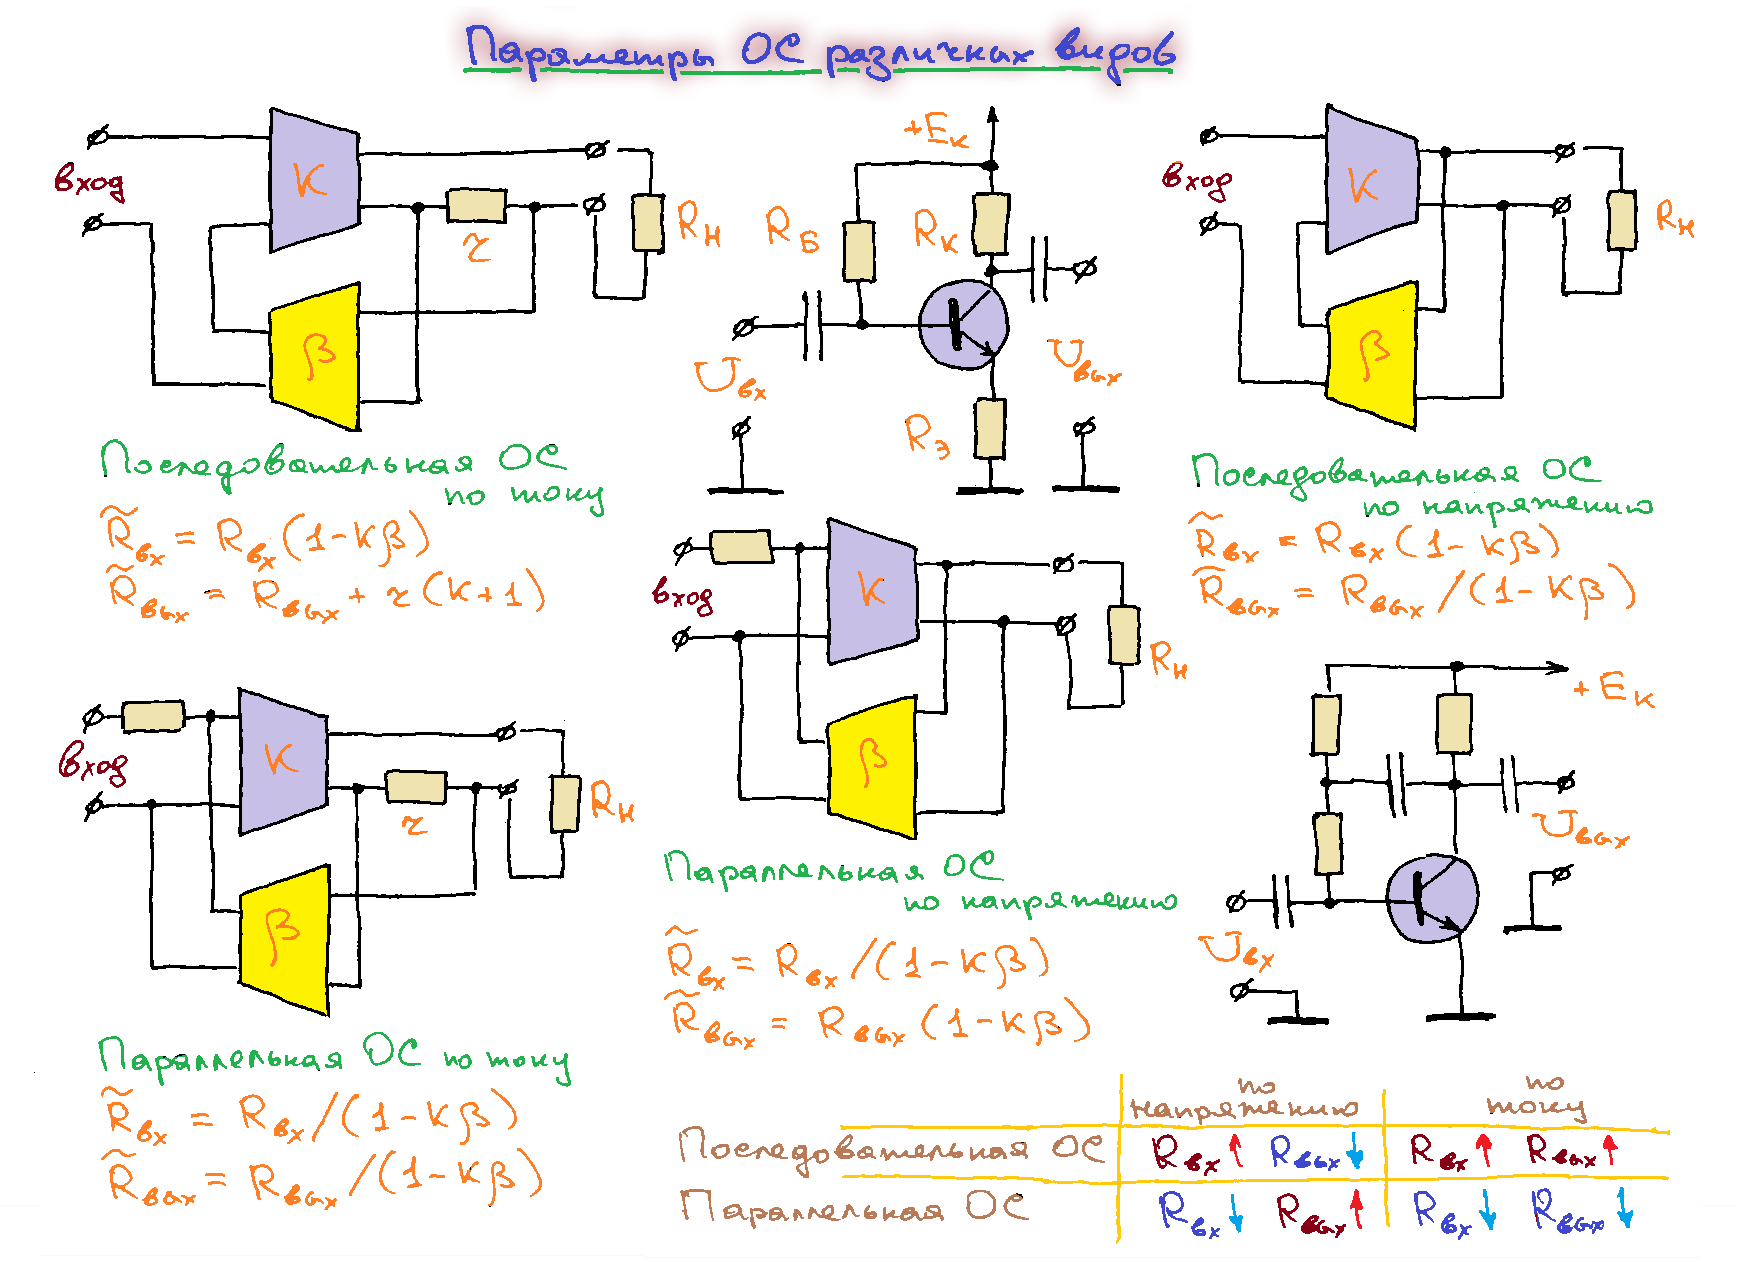 Параметры ОС различных видов
вход
K
β
r
Rн
Последовательная ОС
по току
R̃вх = Rвх(1-Kβ)
R̃вых = Rвых + r(K+1)
+Eк
RБ
Rк
Uвх
Uвых
Rэ
вход
K
β
Rн
Последовательная ОС
по напряжению
R̃вх = Rвх(1-Kβ)
R̃вых = Rвых/(1-Kβ)
вход
K
β
Rн
Параллельная ОС
по напряжению
R̃вх = Rвх/(1-Kβ)
R̃вых = Rвых(1-Kβ)
вход
K
β
r
Rн
Параллельная ОС по току
R̃вх = Rвх/(1-Kβ)
R̃вых = Rвых/(1-Kβ)
+Eк
Uвых
Uвх
по напряжению по току
Последовательная ОС Rвх↑ Rвых↓ Rвх↑ Rвых↑
Параллельная ОС Rвх↓ Rвых↑ Rвх↓ Rвых↓